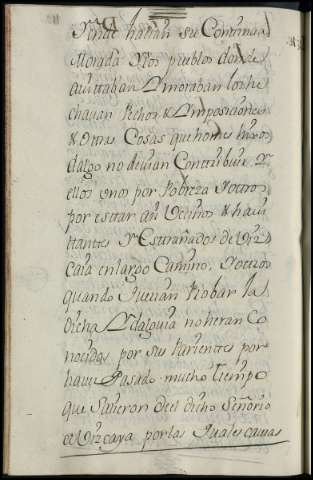 donde hacian su Continua
Morada y los pueblos donde
auitauan y moraban los he
chauan Pechos & Ymposiciones
& Otras Cosas que homes hixos
dalgo no deuian Contribuir y
ellos vnos por Pobreza y otros
por estar ay Vecinos & haui
tantes y Estrañados de Viz
caia en largo Camino, y otros
quando querian Probar la
dicha Ydalguia no heran Co
nocidos por sus Parientes por
hauer Pasado mucho tiempo
que salieron del dicho Señorio
de Vizcaya por las quales causas